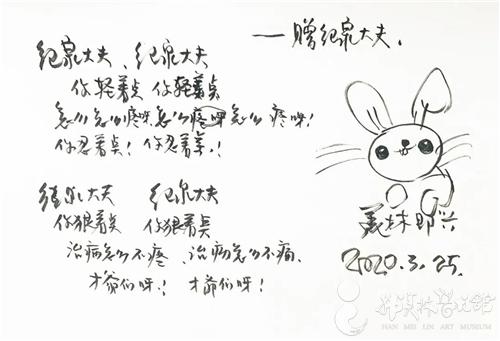 ——赠纪泉大夫、
纪泉大夫、纪泉大夫
你轻着点 你轻着点
怎么怎么疼呀怎么疼呀怎么疼呀!
你忍着点! 你忍着点!
纪泉大夫 纪泉大夫
你狠着点 你狠着点
治病怎么不疼、治病怎么不痛
才爷们呀! 才爷们呀!
美林即兴
2020.3.25.
韩美林艺术馆
HAN MEI LIN ART MUSEUM